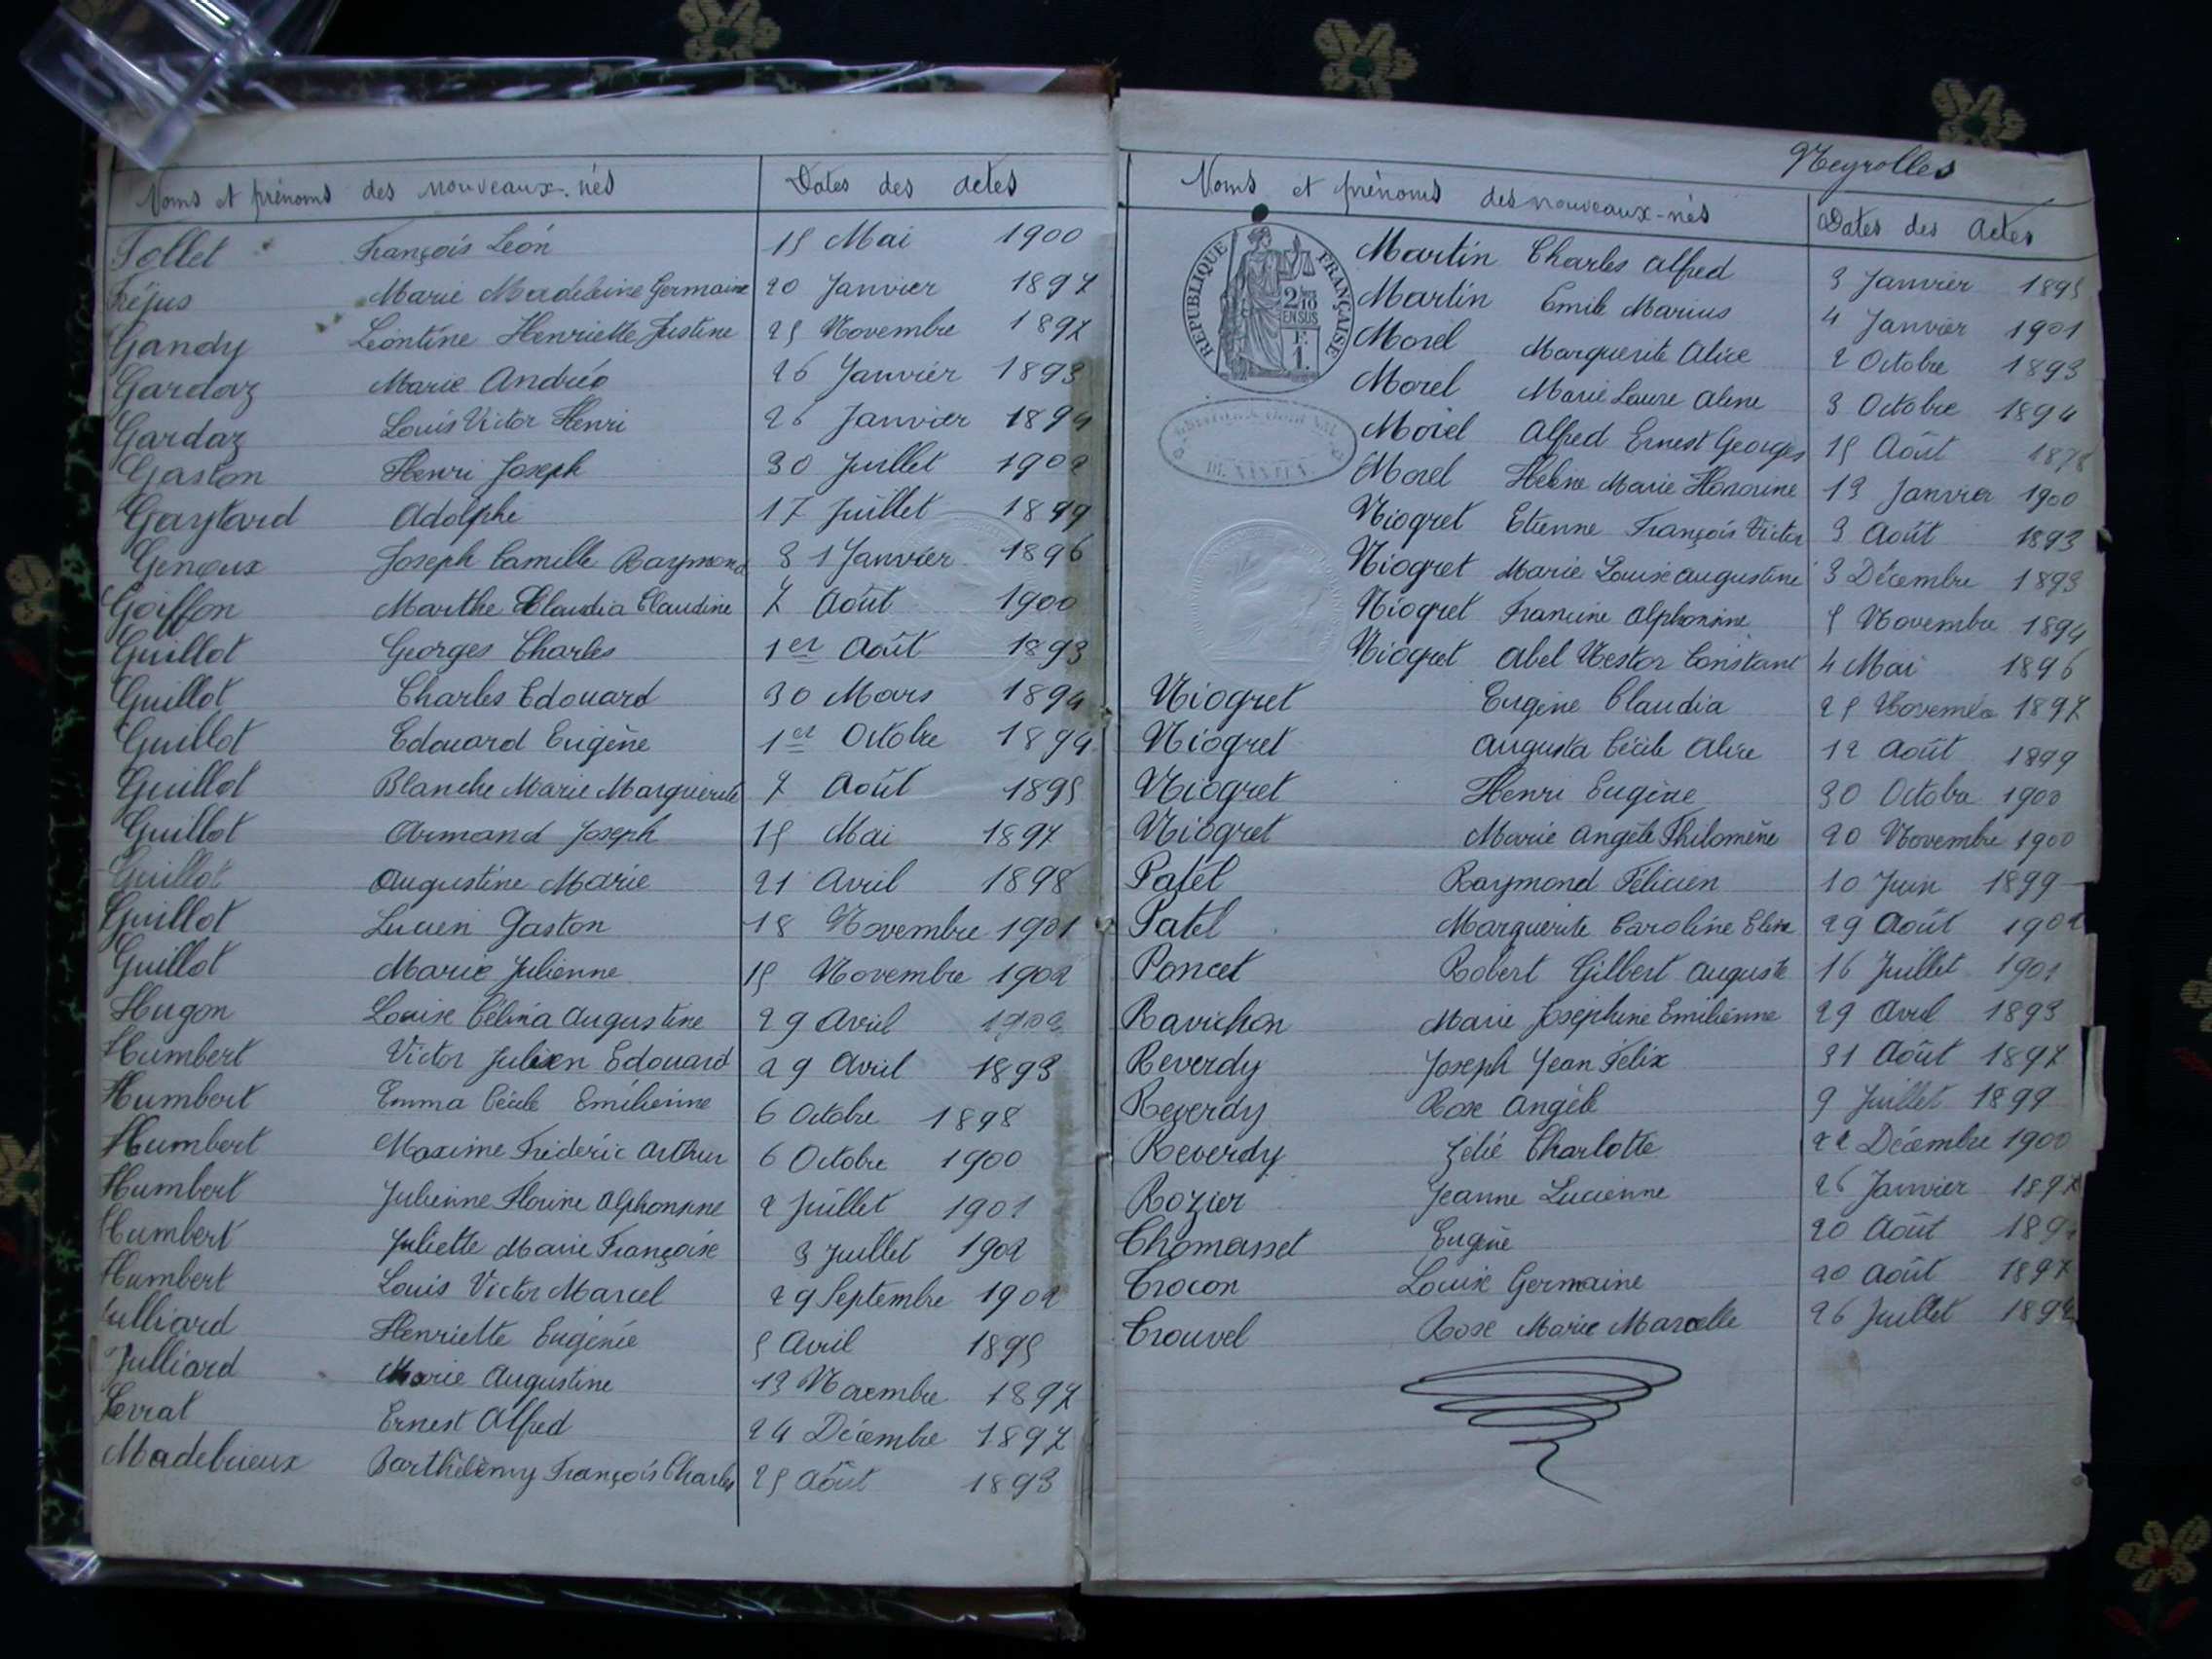 Noms et prénoms des nouveaux-nés Dates des actes
Follet François Léon 15 Mai 1900
Fréjus Marie Madeleine Germaine 20 Janvier 1897
Gandy Léontine Henriette Justine 25 Novembre 1897
Gardaz Marie Andréo 26 Janvier 1893
Gardaz Louis Victor Henri 26 Janvier 1894
Gaston Henri Joseph 30 Juillet 1902
Adolphe 17 Juillet 1899
Genoux Joseph Camille Raymond 31 Janvier 1896
Goiffon Marthe Claudia Claudine 7 Août 1900
Guillot Georges Charles 1er Août 1893
Guillot Charles Edouard 30 Mars 1894
Guillot Edouard Eugène 1er Octobre 1894
Guillot Blanche Marie Marguerite 7 Août 1895
Guillot Armand Joseph 15 Mai 1897
Guillot Augustine Marie 21 Avril 1898
Guillot Lucien Gaston 18 Novembre 1901
Guillot Marie Julienne 15 Novembre 1902
Hugon Louise Célina Augustine 29 Avril 1902
Humbert Victor Julien Edouard 29 Avril 1893
Humbert Emma Cécile Emilienne 6 Octobre 1898
Humbert Maxime Fréderic Arthur 6 Octobre 1900
Humbert Julienne Florine Alphonsine 2 Juillet 1901
Humbert Juliette Marie Françoise 3 Juillet 1902
Humbert Louis Victor Marcel 29 Septembre 1902
Julliard Henriette Eugénie 5 Avril 1895
Julliard Marie Augustine 13 Novembre 1897
Levrat Ernest Alfred 24 Décembre 1897
Madebrieux Barthélemy François Charles 25 Août 1893
Neyrolles
Noms et prénoms des nouveaux-nés Dates des actes
RÉPUBLIQUE FRANÇAISE
2/10
EN SUS
F.
1.
Martin Charles Alfred 3 Janvier 1895
Martin Emile Marius 4 Janvier 1901
Morel Marguerite Alice 2 Octobre 1893
Morel Marie Laure Aline 3 Octobre 1894
Morel Alfred Ernest Georges 15 Août
Morel Hélène Marie Honorine 13 Janvier 1900
Niogret Etienne François Victor 3 Août 1893
Niogret Marie Louise Augustine 3 Décembre 1893
Niogret Francine Alphonsine 5 Novembre 1894
Niogret Abel Nestor Constant 4 Mai 1896
Niogret Eugène Claudia 25 Novembre 1897
Niogret Augusta Cécile Alice 12 Août 1899
Niogret Henri Eugène 30 Octobre 1900
Niogret Marie Angèle Philomène 20 Novembre 1900
Patel Raymond Félicien 10 Juin 1899
Patel Marguerite Caroline Elise 29 Août 1902
Poncet Robert Gilbert Auguste 16 Juillet 1901
Ravichon Marie Joséphine Emilienne 29 Avril 1893
Reverdy Joseph Jean Félix 31 Août 1897
Reverdy Rose Angèle 9 Juillet 1899
Reverdy Zélie Charlotte 22 Décembre 1900
Rozier Jeanne Lucienne 26 Janvier 1897
Thomasset Eugène 20 Août
Trocon Louise Germaine 20 Août 1897
Trouvel Rose Marie Marcelle 26 Juillet